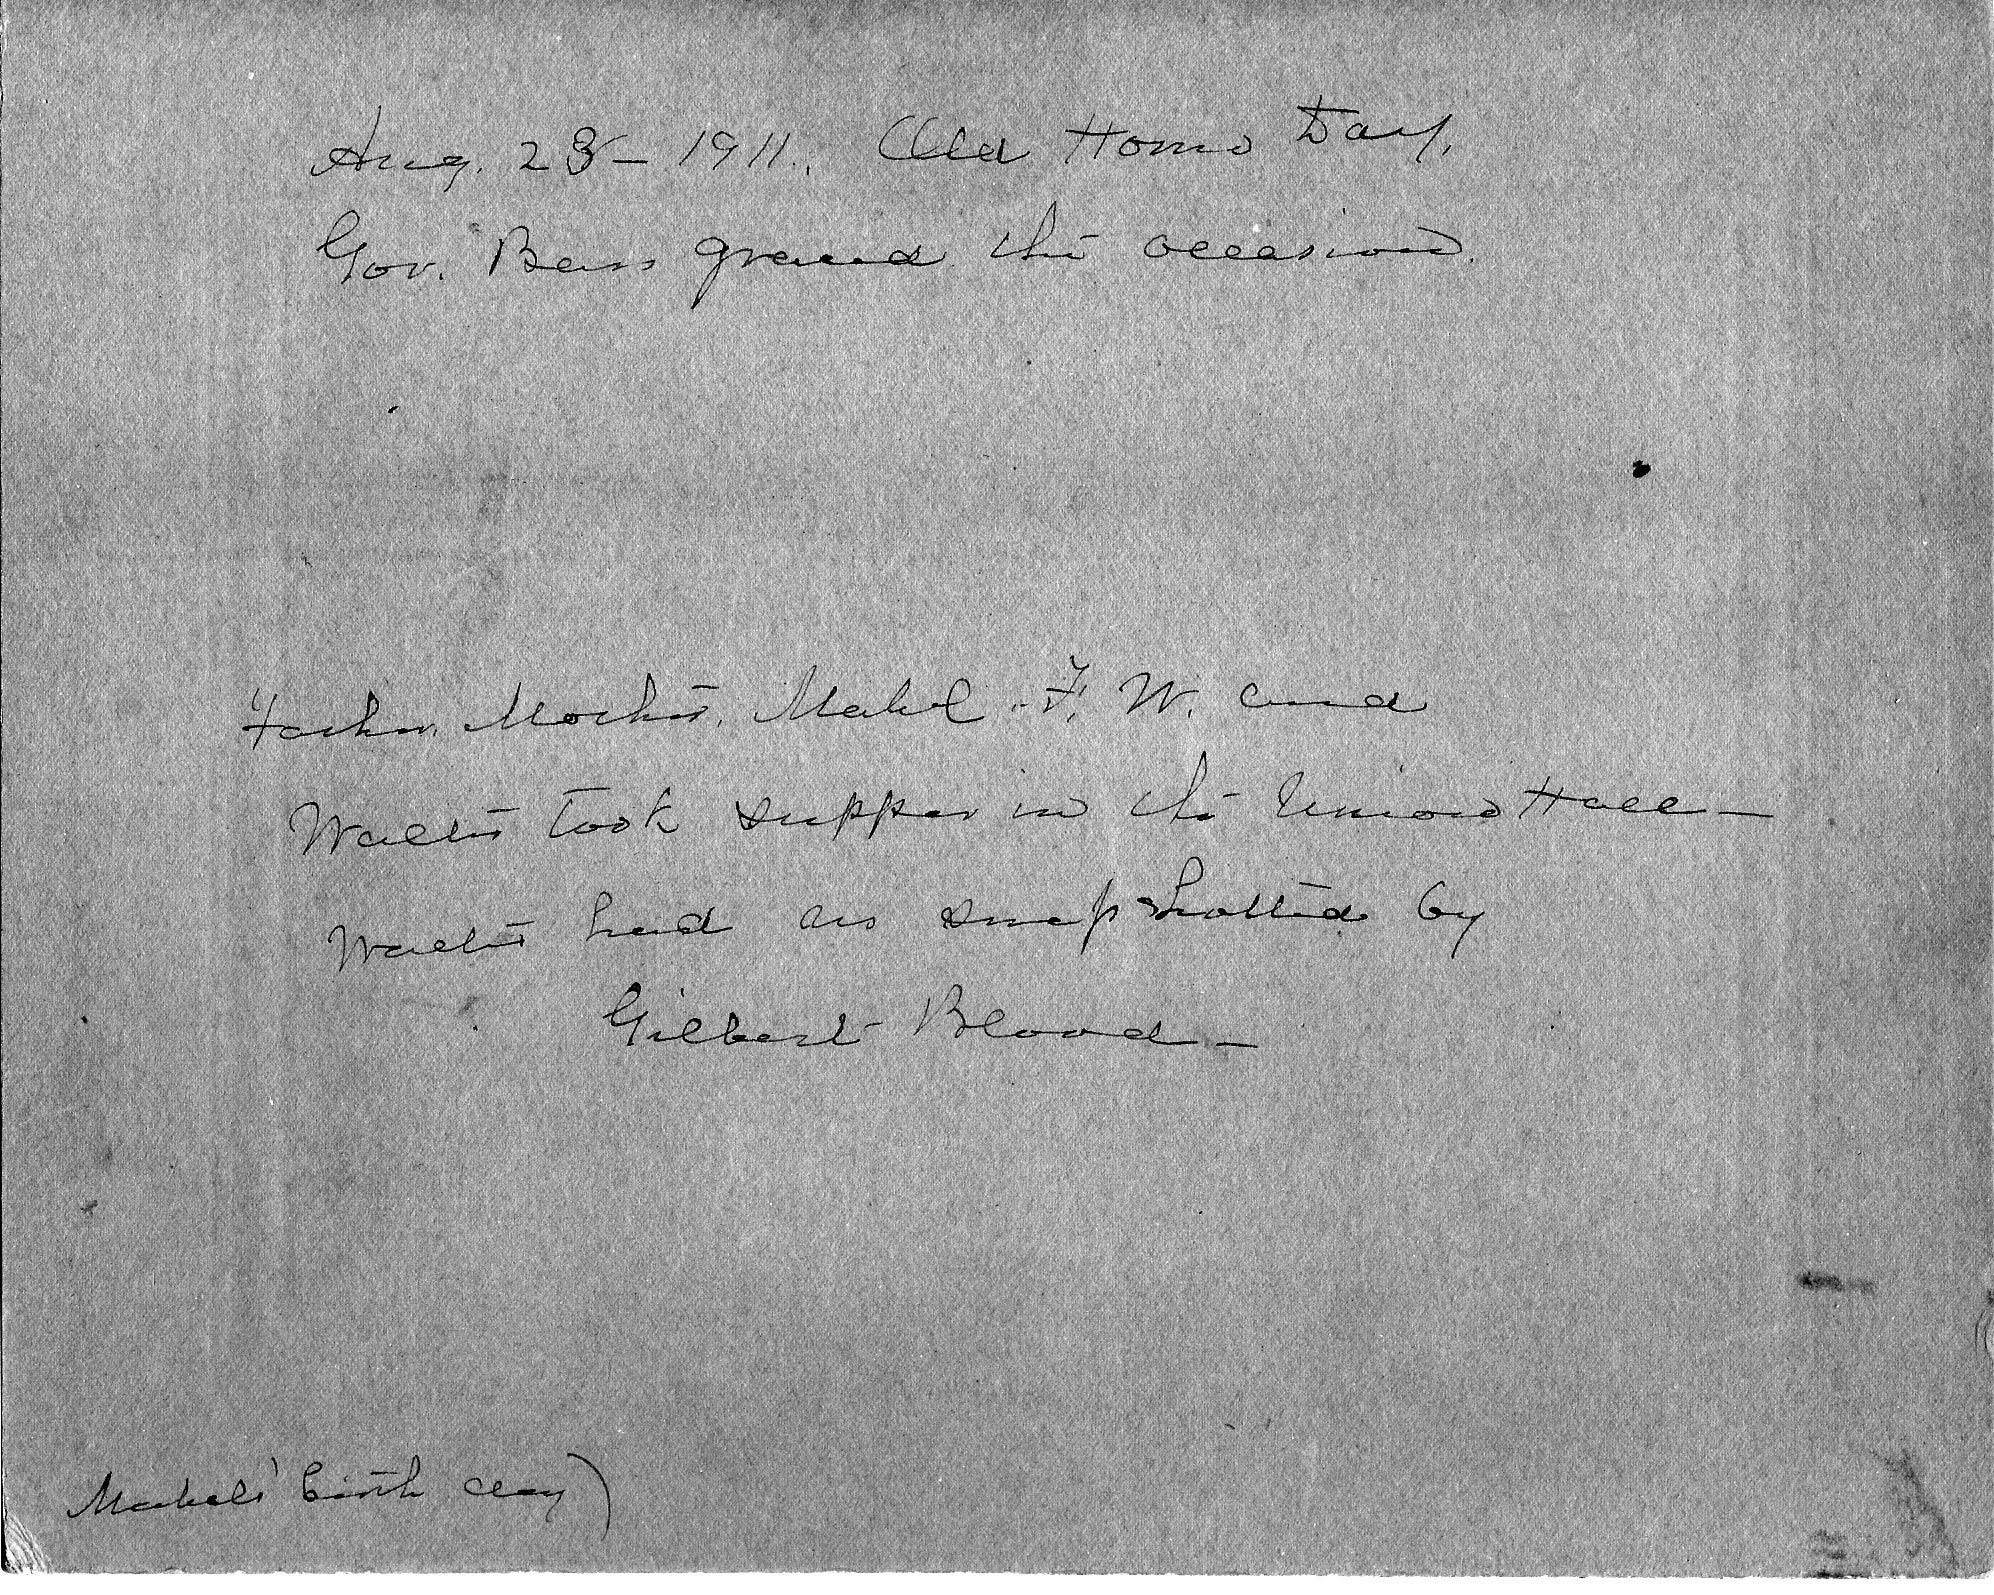 Aug. 23 - 1911. Old Home Day.
Gov. Bass graced the occasion.
Father, Mother, Mabel. F. W. and
Walter took supper in the Union Hall -
Walter had us snap shotted by
Gilbert Blood -
Mabel's birth day)